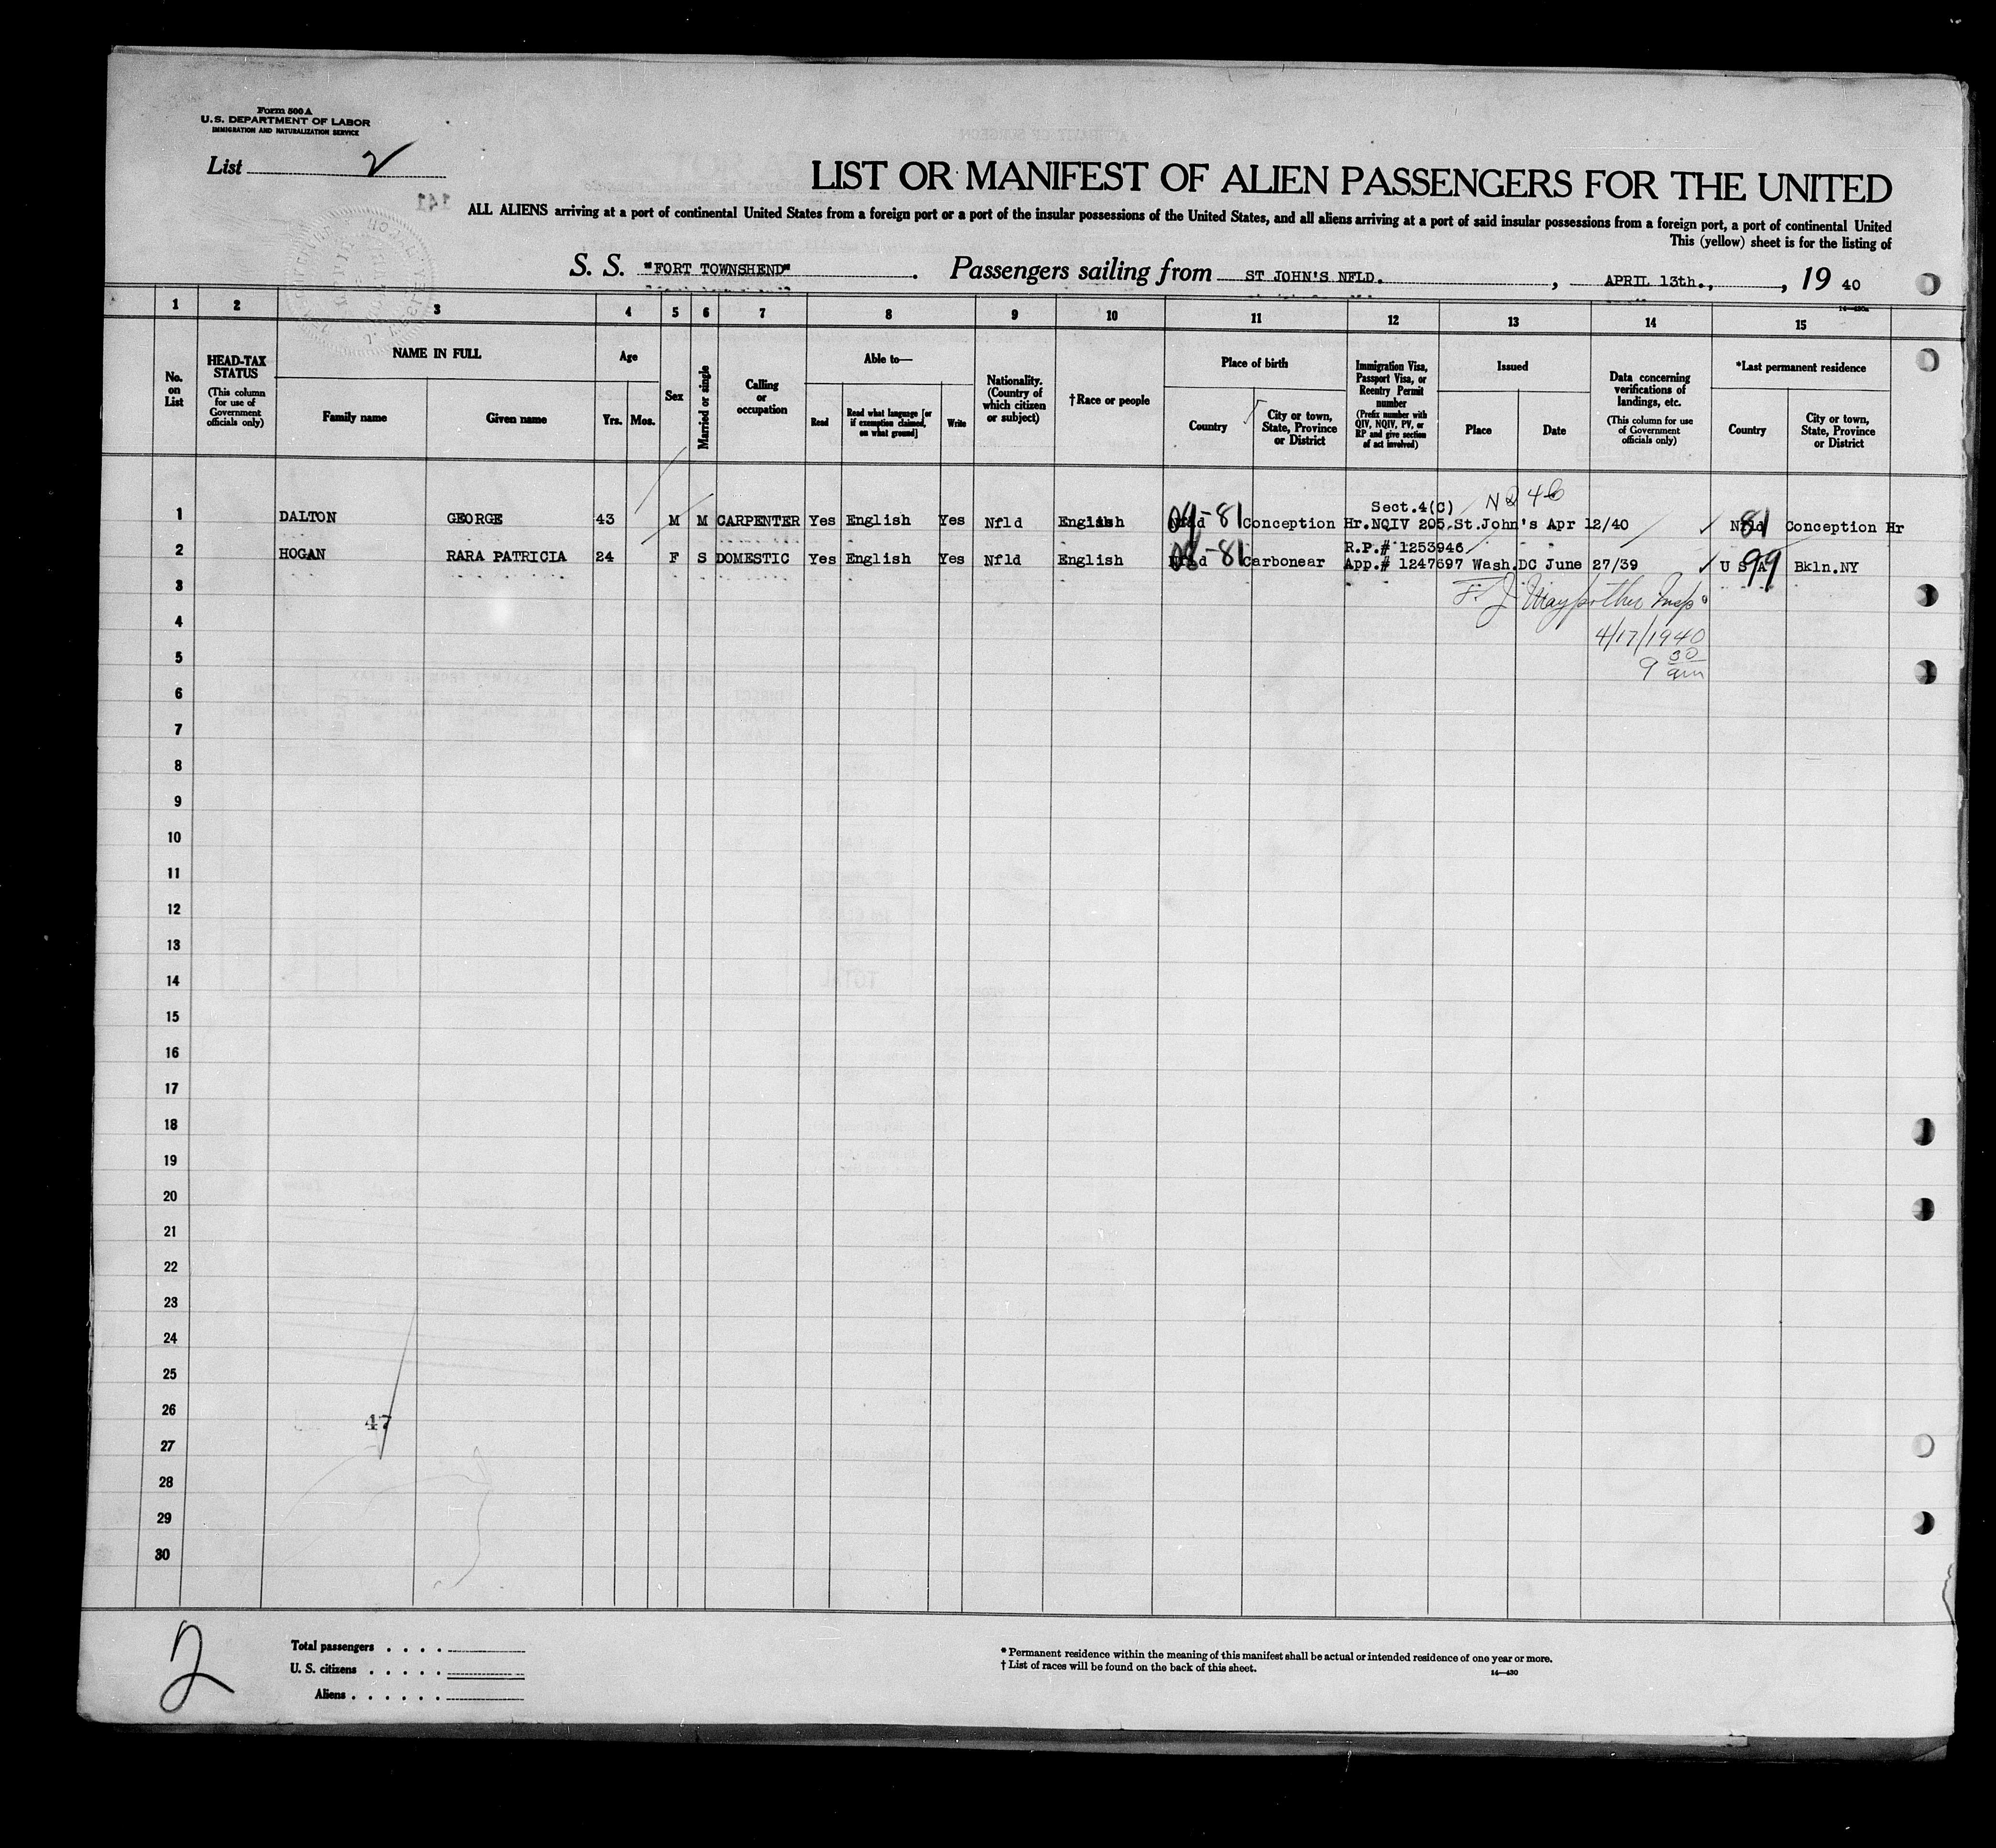 Form 500 A
U. S. DEPARTMENT OF LABOR
IMMIGRATION AND NATURALIZATION SERVICE
List 2
141
LIST OR MANIFEST OF ALIEN PASSENGERS FOR THE UNITED
ALL ALIENS arriving at a port of continental United States from a foreign port or a port of the insular possessions of the United States, and all aliens arriving at a port of said insular possessions from a foreign port, a port of continental United
This (yellow) sheet is for the listing of
S. S. "FORT TOWNSHEND". Passengers sailing from ST JOHN'S NFLD. , APRIL 13th., , 19 40
1 2 3 4 5 6 7 8 9 10 11 12 13 14 15
No. on List
HEAD-TAX STATUS
(This column for use of Government officials only)
NAME IN FULL
Family name Given name
Age
Yrs. Mos.
Sex
Married or single
Calling or occupation
Able to—
Read
Read what language [or if exemption claimed, on what ground]
Write
Nationality. (Country of which citizen or subject)
†Race or people
Place of birth
Country
City or town, State, Province or District
Immigration Visa, Passport Visa, or Reentry Permit number
(Prefix number with QIV, NQIV, PV, or RP and give section of act involved)
Issued
Place Date
Data concerning verifications of landings, etc.
(This column for use of Government officials only)
*Last permanent residence
Country
City or town, State, Province or District
Sect.4(C)
1 DALTON GEORGE 43 M M CARPENTER Yes English Yes Nfld Nfld 81 Conception Hr. NQIV 205 St.John's Apr 12/40 Nfld 81 Conception Hr
R.P.# 1253946
2 HOGAN RARA PATRICIA 24 F S DOMESTIC Yes English Yes Nfld English Nfld 81 Carbonear App.# 1247697 Wash.DC June 27/39 U S A 99 Bkln.NY
3
4
4/17/1940
5
9 30 am
6
7
8
9
10
11
12
13
14
15
16
17
18
19
20
21
22
23
24
25
26
47
27
28
29
30
2
Total passengers
U. S. citizens
Aliens
* Permanent residence within the meaning of this manifest shall be actual or intended residence of one year or more.
† List of races will be found on the back of this sheet.
14—430